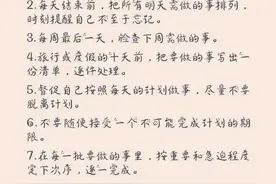 2.每天结束前，把所有明天需做的事排列，
时刻提醒自己不至于忘记。
3.每周最后一天，检查下周需做的事。
4.旅行或度假的十天前，把要做的事写出一
份清单，逐件处理。
5.督促自己按照每天的计划做事，尽量不要
脱离计划。
6.不要随便接受一个不可能完成计划的期
限。
7.在每一批要做的事里，按重要和急迫程度
定下次序，逐一完成。